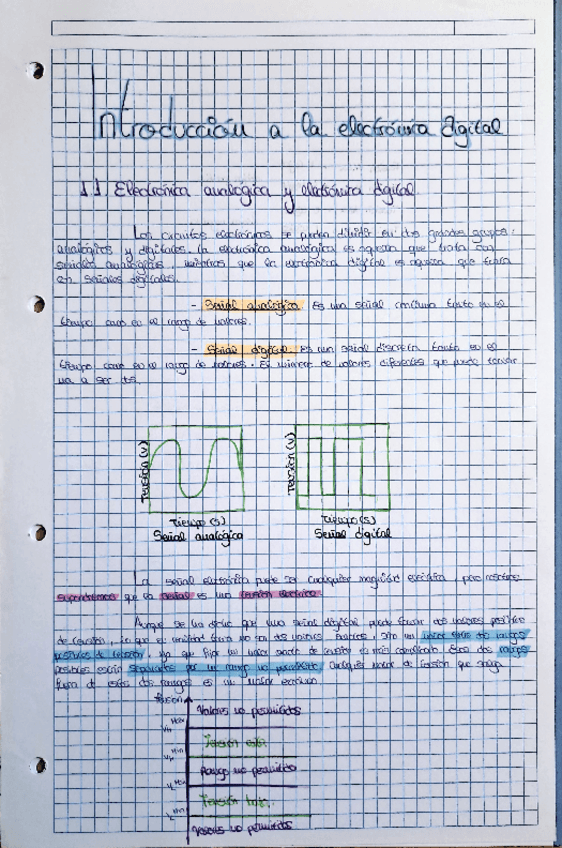 Introducción a la electrónica digital
1.1. Electrónica analógica y electrónica digital
Los circuitos electrónicos se pueden dividir en dos grandes grupos:
analógicos y digitales. La electrónica analógica es aquella que trata con
señales analógicas, mientras que la electrónica digital es aquella que trata
con señales digitales.
- Señal analógica. Es una señal continua tanto en el
tiempo como en el rango de valores.
- Señal digital. Es una señal discreta tanto en el
tiempo como en el rango de valores. El número de valores diferentes que puede tomar
va a ser dos.
Tensión (V)
Tiempo (s)
Señal analógica
Tensión (V)
Tiempo (s)
Señal digital
La señal electrónica puede ser cualquier magnitud eléctrica, pero nosotros
supondremos que la señal es una tensión eléctrica.
Aunque se ha dicho que una señal digital puede tomar dos valores posibles
de tensión, lo que en realidad toma no son dos valores exactos, sino un valor entre dos rangos
posibles de tensión, ya que fijar un valor exacto de tensión es más complicado. Esos dos rangos
posibles están separados por un rango no permitido. Cualquier valor de tensión que caiga
fuera de estos dos rangos es un valor erróneo.
Tensión
Valores no permitidos
VH Max
Tensión alta
VH Min
Rango no permitido
VL Max
Tensión baja
VL Min
Valores no permitidos